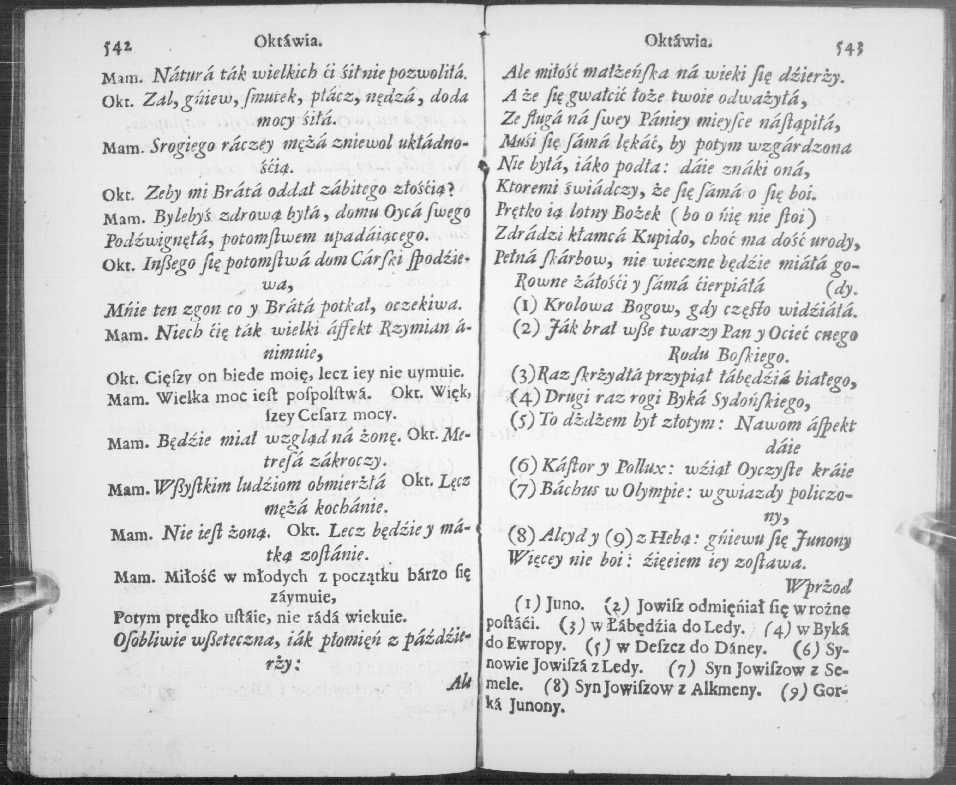 542
Oktáwia.
Mam. Náturá ták wielkich ći śił nie pozwoliłá.
Okt. Zal, gńiew, ſmutek, płácz, nędzá, doda
mocy śiłá.
Mam. Srogiego ráczey mężá zniewol ukłádno-
śćią.
Okt. Zeby mi Brátá oddał zábitego złośćią?
Mam. Bylebyś zdrową byłá, domu Oycá ſwego
Podźwignęłá, potomſtwem upadáiącego.
Okt. Inßego ſię potomſtwá dom Cárſki ſpodźie-
wa,
Mńie ten zgon co y Brátá potkał, oczekiwa.
Mam. Niech ćię ták wielki áffekt Rzymian á-
nimuie,
Okt. Cięſzy on biede moię, lecz iey nie uymuie.
Mam. Wielka moc ieſt poſpolſtwá. Okt. Więk,
ſzey Ceſarz mocy.
Mam. Będźie miał wzgląd ná żonę. Okt. Me-
treſá zákroczy.
Mam. Wßyſtkim ludźiom obmierźłá Okt. Lęcz
mężá kochánie.
Mam. Nie ieſt żoną. Okt. Lecz będźie y má-
tką zoſtánie.
Mam. Miłość w młodych z początku bárzo ſię
záymuie,
Potym prędko uſtáie, nie rádá wiekuie.
Oſobliwie wßeteczna, iák płomięń z páźdźie-
rży:
Ale
Oktáwia.
543
Ale miłość małżeńſka ná wieki ſię dźierży.
A że ſię gwałcić łoże twoie odważyłá,
Ze ſługá ná ſwey Pániey mieyſce náſtąpiłá,
Muśi ſię ſámá lękáć, by potym wzgárdzona
Nie byłá, iáko podła: dáie znáki oná,
Ktoremi świádczy, że ſię ſamá o ſię boi.
Prętko ią lotny Bożek (bo o ńię nie ſtoi)
Zdrádzi kłamcá Kupido, choć ma dość urody,
Pełná ſkárbow, nie wieczne będźie miáłá go-
Rowne żáłośći y ſámá ćierpiáłá (dy.
(1) Krolowa Bogow, gdy częſto widźiáłá.
(2) Ják brał wße twarzy Pan y Ocieć cnego
Rodu Boſkiego.
(3) Raz ſkrżydłá przypiął łábędźiá białego,
(4) Drugi raz rogi Byká Sydońſkiego,
(5) To dżdżem był złotym: Nawom áſpekt
dáie
(6) Káſtor y Pollux: wźiął Oyczyſte kráie
(7) Báchus w Olympie: w gwiazdy policzo-
ny,
(8) Alcyd y (9) z Hebą: gńiewu ſię Junony
Więcey nie boi: źięćiem iey zoſtawa.
Wprżod
(1) Juno. (2) Jowiſz odmięńiał ſię w rożne
poſtáći. (3) w Łábędźia do Ledy. (4) w Byká
do Ewropy. (5) w Deſzcz do Dáney. (6) Sy-
nowie Jowiſzá z Ledy. (7) Syn Jowiſzow z Se-
mele. (8) Syn Jowiſzow z Alkmeny. (9) Gor-
ká Junony.